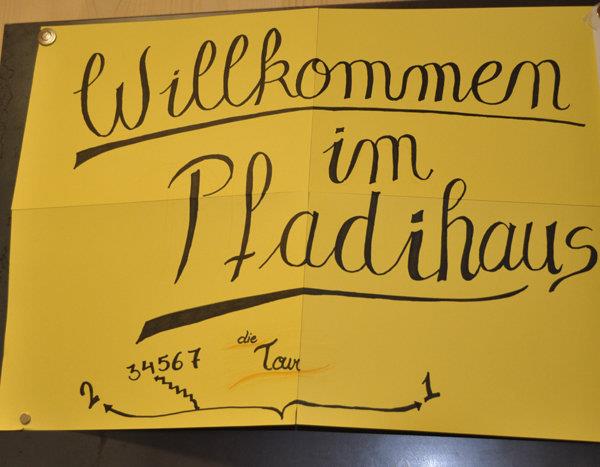 Willkommen
im
Pfadihaus
die
Tour
34567
2 1